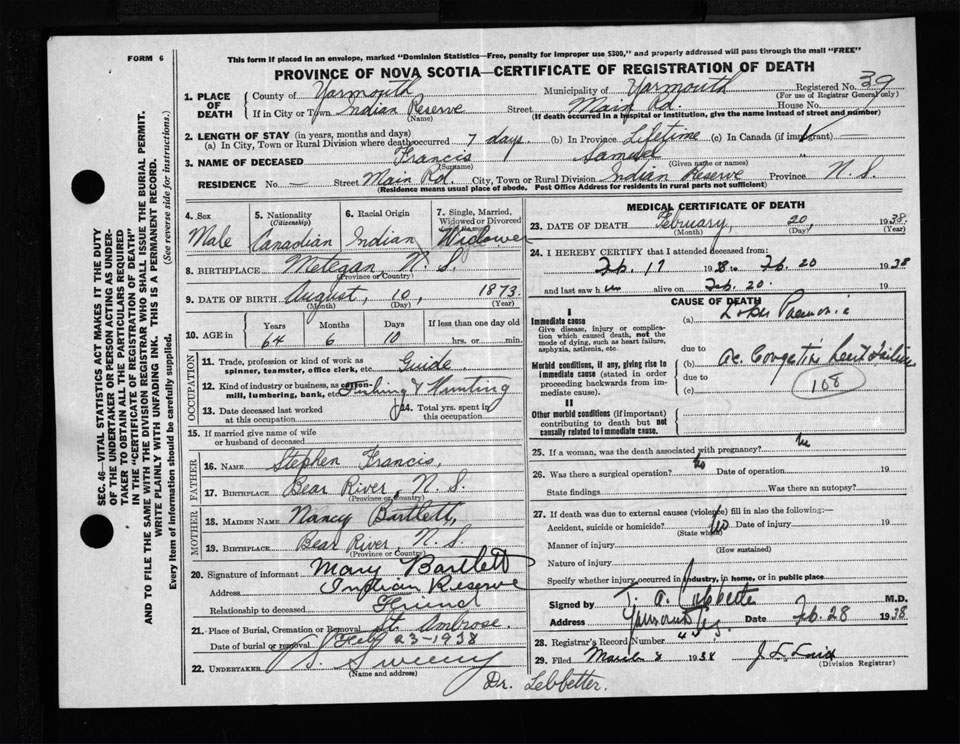 FORM 6
This form if placed in an envelope, marked "Dominion Statistics—Free, penalty for improper use $300," and properly addressed will pass through the mail "FREE"
PROVINCE OF NOVA SCOTIA—CERTIFICATE OF REGISTRATION OF DEATH
1. PLACE OF DEATH County of Yarmouth Municipality of Yarmouth Registered No. 39
(For use of Registrar General only)
If in City or Town Indian Reserve Street Main Rd. House No.
(Name) (If death occurred in a hospital or institution, give the name instead of street and number)
2. LENGTH OF STAY (in years, months and days)
(a) In City, Town or Rural Division where death occurred 7 days. (b) In Province Lifetime (c) In Canada (if immigrant) —
3. NAME OF DECEASED Francis Samuel
(Surname) (Given name or names)
RESIDENCE No. — Street Main Rd. City, Town or Rural Division Indian Reserve Province N. S
(Residence means usual place of abode. Post Office Address for residents in rural parts not sufficient)
SEC. 46—VITAL STATISTICS ACT MAKES IT THE DUTY
OF THE UNDERTAKER OR PERSON ACTING AS UNDER-
TAKER TO OBTAIN ALL THE PARTICULARS REQUIRED
IN THE "CERTIFICATE OF REGISTRATION OF DEATH"
AND TO FILE THE SAME WITH THE DIVISION REGISTRAR WHO SHALL ISSUE THE BURIAL PERMIT.
WRITE PLAINLY WITH UNFADING INK. THIS IS A PERMANENT RECORD.
Every item of information should be carefully supplied. (See reverse side for instructions.)
4. Sex 5. Nationality (Citizenship) 6. Racial Origin 7. Single, Married, Widowed or Divorced
Male Canadian Indian Widower
8. BIRTHPLACE Metegan N. S.
(Province or Country)
9. DATE OF BIRTH August, 10, 1873.
(Month) (Day) (Year)
10. AGE in Years Months Days If less than one day old
64 6 10 hrs. or min.
OCCUPATION
11. Trade, profession or kind of work as spinner, teamster, office clerk, etc. Guide
12. Kind of industry or business, as cotton-mill, lumbering, bank, etc. Fishing & Hunting
13. Date deceased last worked at this occupation
14. Total yrs. spent in this occupation
15. If married give name of wife or husband of deceased
FATHER
16. NAME Stephen Francis,
17. BIRTHPLACE Bear River, N. S.
(Province or Country)
MOTHER
18. MAIDEN NAME Nancy Bartlett,
19. BIRTHPLACE Bear River, N. S.
(Province or Country)
20. Signature of informant Mary Bartlett
Address Indian Reserve
Relationship to deceased Friend
21. Place of Burial, Cremation or Removal St. Ambrose.
Date of burial or removal Feby 23-1938
22. UNDERTAKER Sweeny
(Name and address)
MEDICAL CERTIFICATE OF DEATH
23. DATE OF DEATH February, 20, 1938.
(Month) (Day) (Year)
24. I HEREBY CERTIFY that I attended deceased from:
Feb. 17 1938 to Feb. 20 1938
and last saw him alive on Feb. 20. 19
CAUSE OF DEATH
I
Immediate cause
Give disease, injury or complication which caused death, not the mode of dying, such as heart failure, asphyxia, asthenia, etc.
(a) Lobar Pneumonia
due to
Morbid conditions, if any, giving rise to immediate cause (stated in order proceeding backwards from immediate cause).
(b) Ac. Congestive heart failure
due to
(c) 108
II
Other morbid conditions (if important) contributing to death but not causally related to immediate cause.
25. If a woman, was the death associated with pregnancy?
26. Was there a surgical operation? No Date of operation 19
State findings Was there an autopsy?
27. If death was due to external causes (violence) fill in also the following:—
Accident, suicide or homicide? No Date of injury 19
(State which)
Manner of injury
(How sustained)
Nature of injury
Specify whether injury occurred in industry, in home, or in public place
Signed by T. A. Lebbetter M.D.
Address Yarmouth N.S. Date Feb. 28 1938
28. Registrar's Record Number
29. Filed March 8 1938
(Division Registrar)
Dr. Lebbetter.